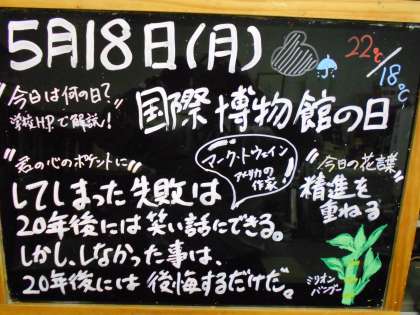 5月18日(月)
22℃/18℃
"今日は何の日?"
学校HPで解説!
国際博物館の日
"君の心のポケットに"
マーク・トウェイン
アメリカの作家!
"今日の花言葉"
精進を重ねる
してしまった失敗は
20年後には笑い話にできる。
しかし、しなかった事は、
20年後には後悔するだけだ。
ミリオンバンブー